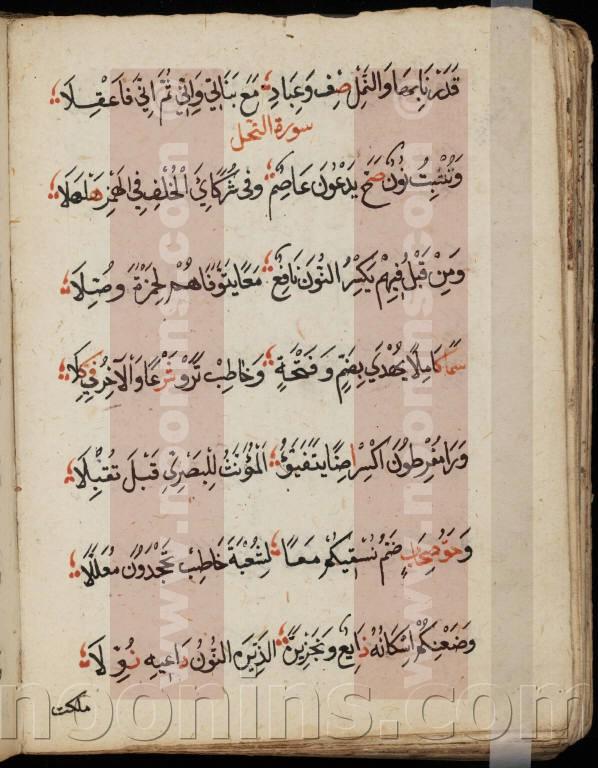 قَدَرْنَا بِهَا وَالنَّمْلِ صِفْ وَعِبَادِ مَعْ بَنَاتِي وَإِنِّي ثُمَّ إِنِّي فَاعْقِلَا
سورة النحل
وَنُنْبِتُ نُونٌ صَحَّ يَدْعُونَ عَاصِمٌ وَفِي شُرَكَايَ الْخُلْفُ فِي الْهَمْزِ هَلْهَلَا
وَمِنْ قَبْلُ فِيهِمْ يَكْسِرُ النُّونَ نَافِعٌ مَعًا يَتَوَفَّاهُمْ لِحَمْزَةَ وُصِّلَا
سَمَا كَامِلًا يَهْدِي بِضَمٍّ وَفَتْحَةٍ وَخَاطِبْ تَرَوْا شَرْعًا وَالْآخِرُ فِي كِلَا
وَرَا مُفْرَطُونَ اكْسِرْ أَضًا يَتَفَيَّؤُ الْمُؤَنَّثُ لِلْبَصْرِيِّ قَبْلُ تُقُبِّلَا
وَحَقُّ صِحَابٍ ضَمُّ نُسْقِيكُمُ مَعًا لِشُعْبَةَ خَاطِبْ تَجْحَدُونَ مُعَلَّلَا
وَظَعْنِكُمْ إِسْكَانُهُ ذَايِعٌ وَنَجْزِيَنَّ الَّذِينَ النُّونُ دَاعِيهِ نُوِّلَا
ملكت
noonins.com
www.noonins.com
www.noonins.com